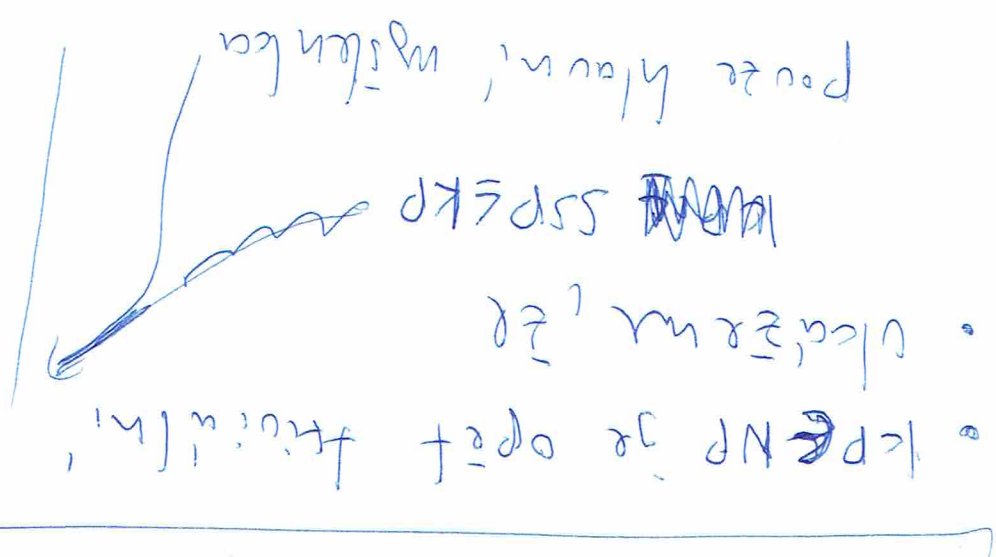 • KP∈NP je opět triviální
• ukážeme, že
SSP ≤ KP
pouze hlavní myšlenka